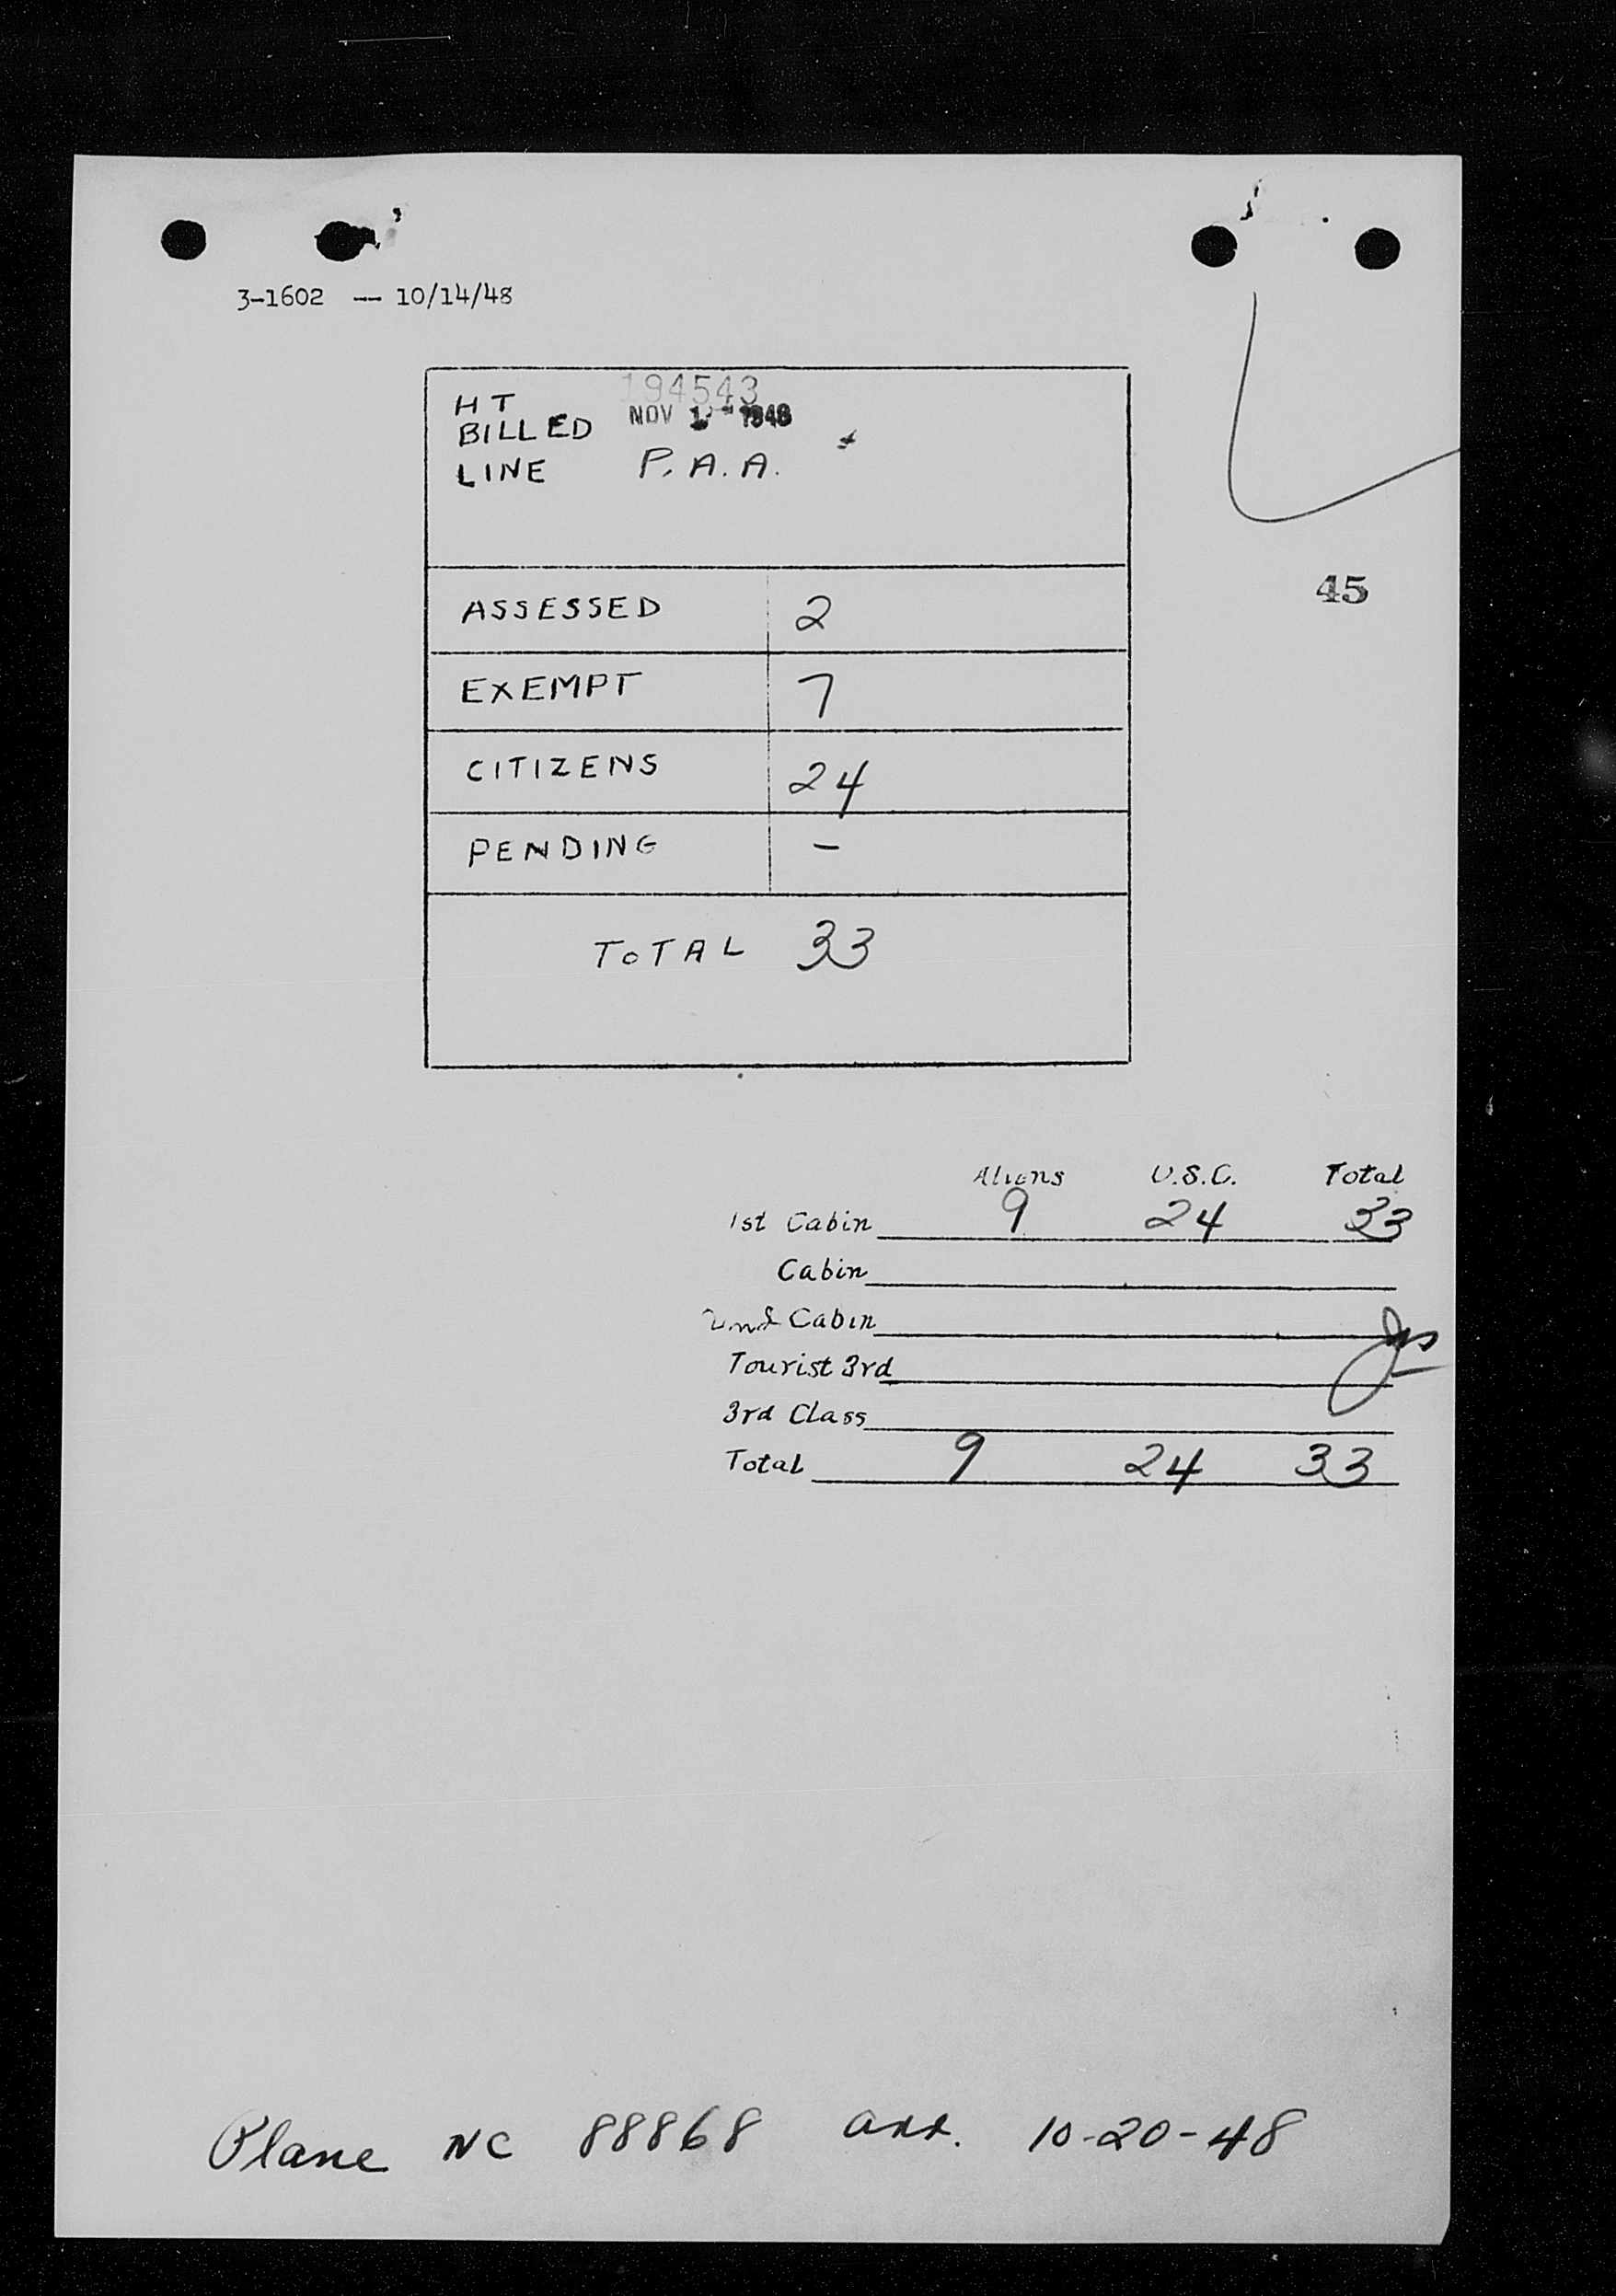 3-1602 -- 10/14/48
HT 194543
BILLED NOV 1948
LINE P.A.A.
45
ASSESSED 2
EXEMPT 7
CITIZENS 24
PENDING –
TOTAL 33
Aliens U.S.C. Total
1st Cabin 9 24 33
Cabin
2nd Cabin
Tourist 3rd
3rd Class
Total 9 24 33
Plane NC 88868 arr. 10-20-48